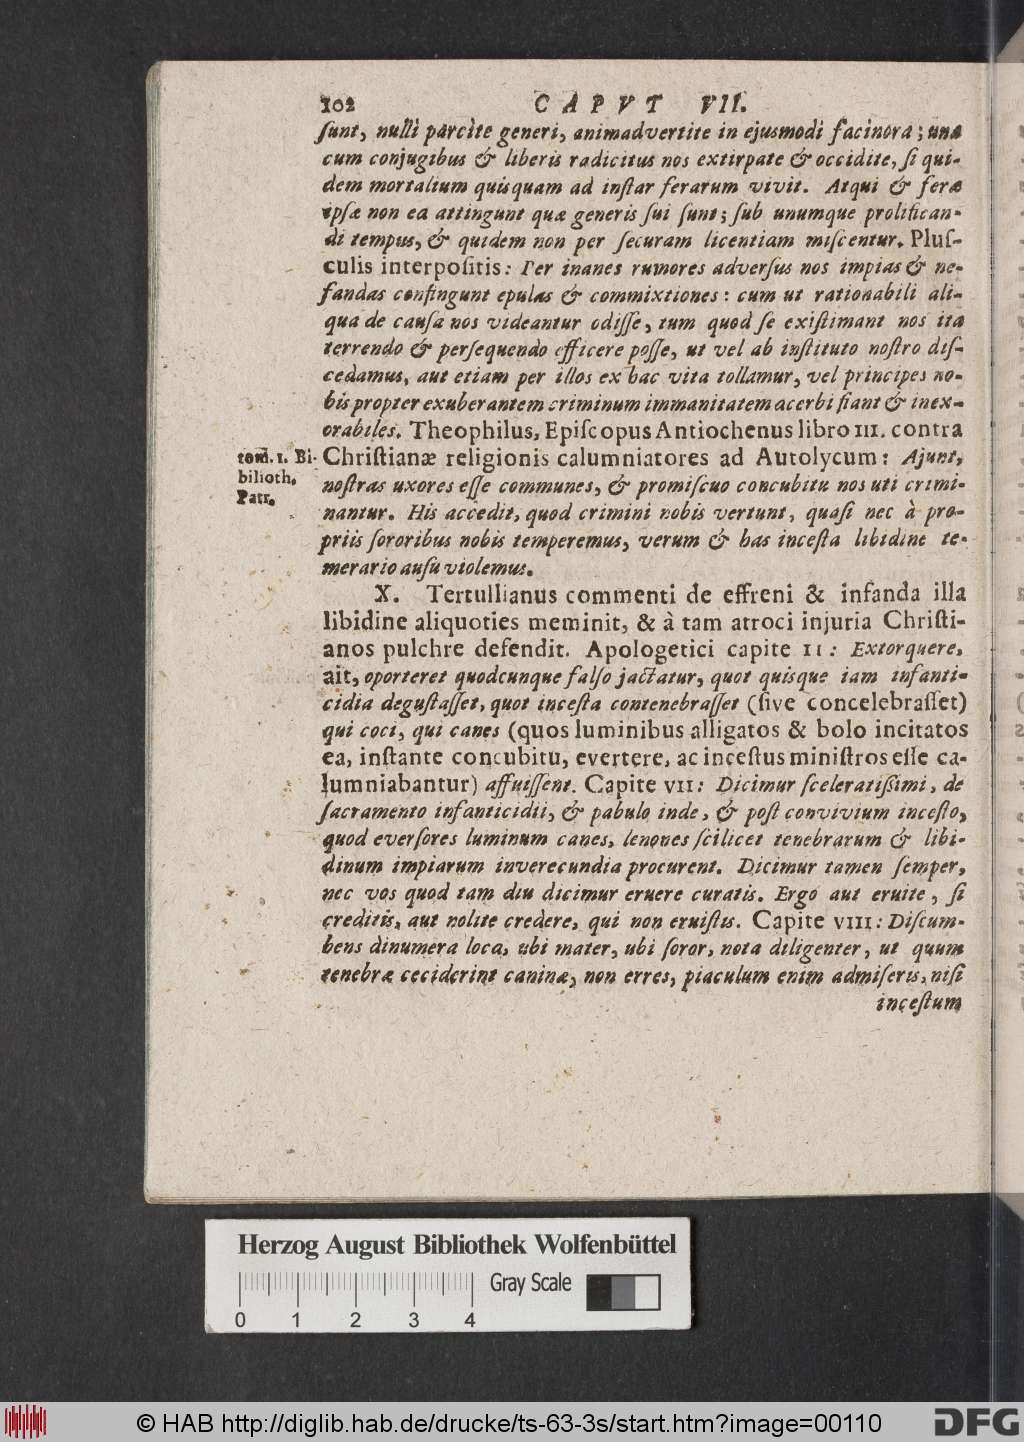 102 CAPVT VII.
ſunt, nulli parcite generi, animadvertite in ejusmodi facinora; una
cum conjugibus & liberis radicitus nos extirpate & occidite, ſi qui-
dem mortalium quisquam ad inſtar ferarum vivit. Atqui & feræ
ipſæ non ea attingunt quæ generis ſui ſunt; ſub unumque prolifican-
di tempus, & quidem non per ſecuram licentiam miſcentur. Pluſ-
culis interpoſitis: Per inanes rumores adverſus nos impias & ne-
fandas confingunt epulas & commixtiones: cum ut rationabili ali-
qua de cauſa nos videantur odiſſe, tum quod ſe exiſtimant nos ita
terrendo & perſequendo efficere poſſe, ut vel ab inſtituto noſtro diſ-
cedamus, aut etiam per illos ex hac vita tollamur, vel principes no-
bis propter exuberantem criminum immanitatem acerbi fiant & inex-
orabiles. Theophilus, Epiſcopus Antiochenus libro III. contra
tom. 1. Bi-
bilioth.
Patr.
Chriſtianæ religionis calumniatores ad Autolycum: Ajunt,
noſtras uxores eſſe communes, & promiſcuo concubitu nos uti crimi-
nantur. His accedit, quod crimini nobis vertunt, quaſi nec à pro-
priis ſororibus nobis temperemus, verum & has inceſta libidine te-
merario auſu violemus.
X. Tertullianus commenti de effreni & infanda illa
libidine aliquoties meminit, & à tam atroci injuria Chriſti-
anos pulchre defendit. Apologetici capite 11: Extorquere,
ait, oporteret quodcunque falſo jactatur, quot quisque iam infanti-
cidia deguſtaſſet, quot inceſta contenebraſſet (ſive concelebraſſet)
qui coci, qui canes (quos luminibus alligatos & bolo incitatos
ea, inſtante concubitu, evertere, ac inceſtus miniſtros eſſe ca-
lumniabantur) affuiſſent. Capite VII: Dicimur ſceleratiſſimi, de
ſacramento infanticidii, & pabulo inde, & poſt convivium inceſto,
quod everſores luminum canes, lenones ſcilicet tenebrarum & libi-
dinum impiarum inverecundia procurent. Dicimur tamen ſemper,
nec vos quod tam diu dicimur eruere curatis. Ergo aut eruite, ſi
creditis, aut nolite credere, qui non eruiſtis. Capite VIII: Diſcum-
bens dinumera loca, ubi mater, ubi ſoror, nota diligenter, ut quum
tenebræ ceciderint caninæ, non erres, piaculum enim admiſeris, niſi
inceſtum
Herzog August Bibliothek Wolfenbüttel
Gray Scale
0 1 2 3 4
© HAB http://diglib.hab.de/drucke/ts-63-3s/start.htm?image=00110
DFG